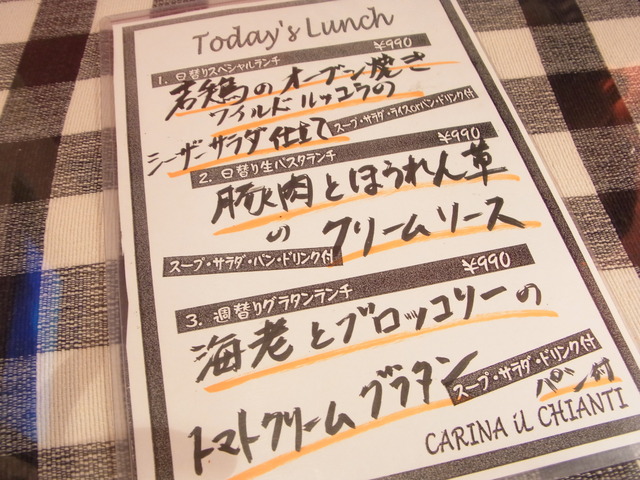 Today's Lunch
1. 日替りスペシャルランチ ¥990
若鶏のオーブン焼き
ワイルドルッコラの
シーザーサラダ仕立て
スープ・サラダ・ライスorパン・ドリンク付
2. 日替り生パスタランチ ¥990
豚肉とほうれん草
の クリームソース
スープ・サラダ・パン・ドリンク付
3. 週替りグラタンランチ ¥990
海老とブロッコリーの
トマトクリームグラタン
スープ・サラダ・ドリンク付
パン付
CARINA iL CHIANTI